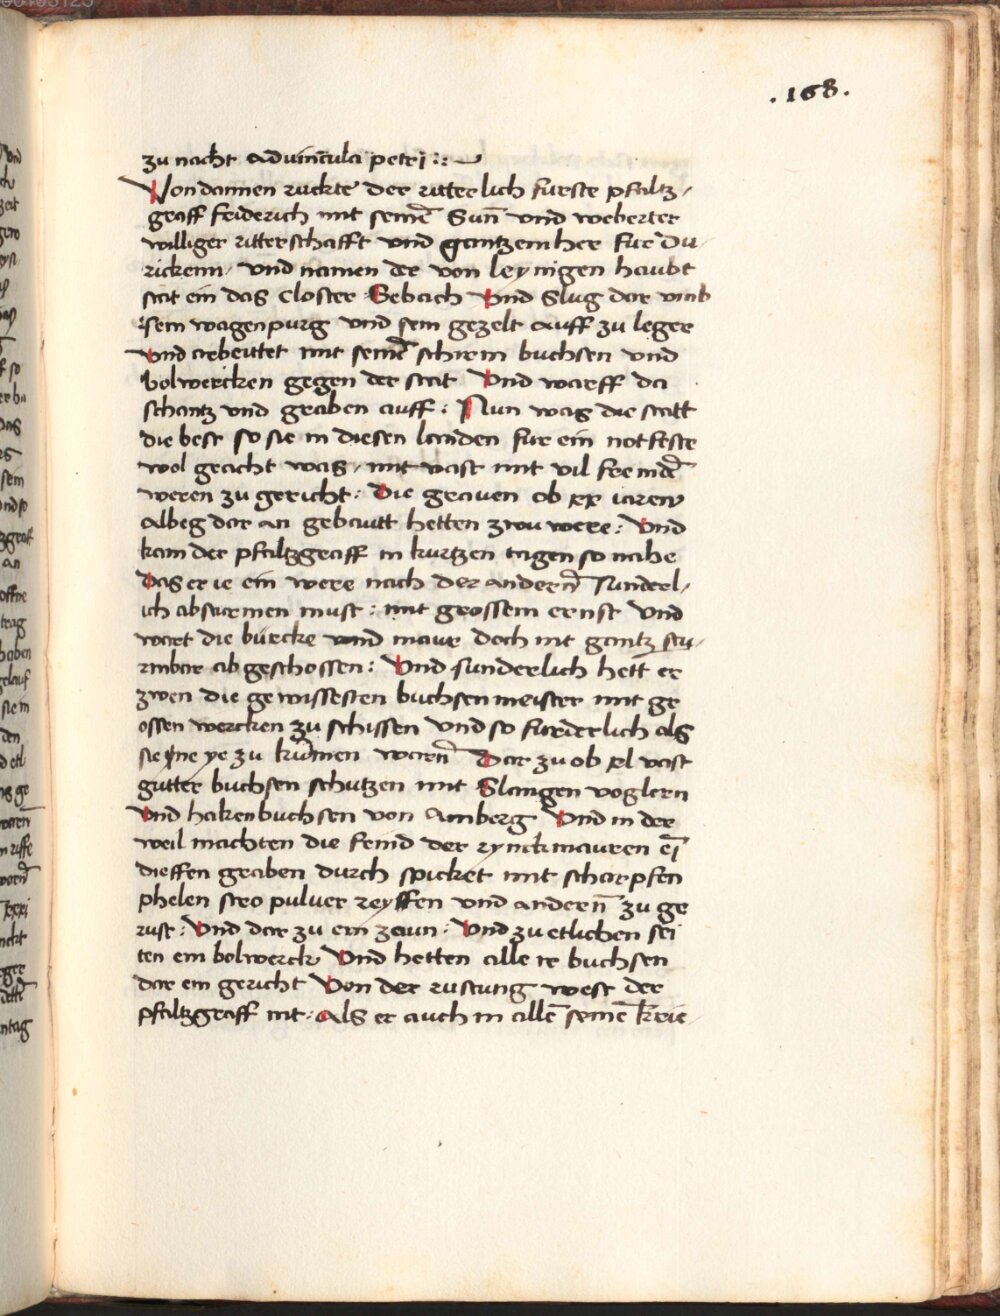 .168.
zu nacht Advincula petri :: ~
Von dannen ruckte der ritterlich furste pfaltz-
graff friderich mit seinē Sun̄ vnd weberter
williger ritterschafft vnd gantzem her fur Du-
rickenn, vnd namen der von leynigen haubt
stat ein das closter Sebach Vnd Slug dar vmb
sein wagenpurg vnd sein gezelt auff zu leger
Vnd arbeittet mit seinē schirm buchsen vnd
bolwercken gegen der stat Vnd warff da
schantz vnd graben auff : Nun was die statt
die best so sie in diesen landen fur ein notfeste
wol geacht was, mit vast mit vil fremdē
weren zu gericht : Die graven ob xx iaren
Albeg dar an gebautt hetten zwu were : Vnd
kam der pfaltzgraff in kurtzen tagen so nahe
Das er ie ein were nach der andern̄ sunderl-
ich absturmen must : mit grossem ernst Vnd
wart die burcke vnd maur doch nit gantz stu-
rmbar ab geschossen : Vnd sunderlich hett er
zwen die gewissesten buchsenmeister mit gr
ossen wercken zu schissen vnd so furderlich als
sie ine ye zu kūmen warn̄ Dar zu ob xl vast
gutter buchsen schutzen mit Slangen voglern
Vnd hakenbuchsen von Amberg Vnd in der
weil machten die feind der rynckmauren eī
dieffen graben durch spicket mit scharpfen
phelen stro puluer reyffen vnd andern̄ zu ge
rust : Vnd dar zu ein zaun : Vnd zu etlichen sei
ten ein bolwerck Vnd hetten alle ir buchsen
dar ein gericht Von der rustung west der
pfaltzgraff nit : Als er auch in allē seinē krie-